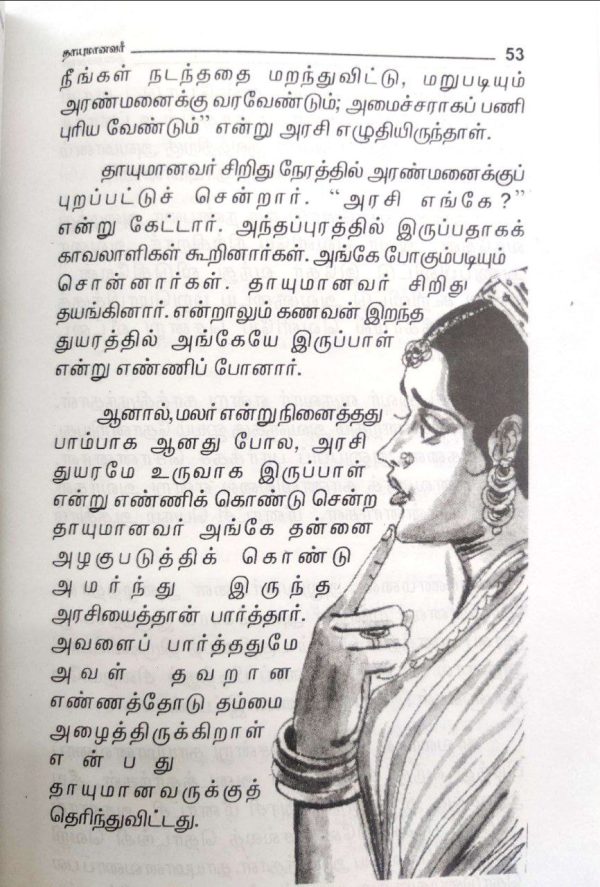 தாயுமானவர் 53
நீங்கள் நடந்ததை மறந்துவிட்டு, மறுபடியும்
அரண்மனைக்கு வரவேண்டும்; அமைச்சராகப் பணி
புரிய வேண்டும்” என்று அரசி எழுதியிருந்தாள்.
தாயுமானவர் சிறிது நேரத்தில் அரண்மனைக்குப்
புறப்பட்டுச் சென்றார். “அரசி எங்கே?”
என்று கேட்டார். அந்தப்புரத்தில் இருப்பதாகக்
காவலாளிகள் கூறினார்கள். அங்கே போகும்படியும்
சொன்னார்கள். தாயுமானவர் சிறிது
தயங்கினார். என்றாலும் கணவன் இறந்த
துயரத்தில் அங்கேயே இருப்பாள்
என்று எண்ணிப் போனார்.
ஆனால், மலர் என்று நினைத்தது
பாம்பாக ஆனது போல, அரசி
துயரமே உருவாக இருப்பாள்
என்று எண்ணிக் கொண்டு சென்ற
தாயுமானவர் அங்கே தன்னை
அழகுபடுத்திக் கொண்டு
அமர்ந்து இருந்த
அரசியைத்தான் பார்த்தார்.
அவளைப் பார்த்ததுமே
அவள் தவறான
எண்ணத்தோடு தம்மை
அழைத்திருக்கிறாள்
என்பது
தாயுமானவருக்குத்
தெரிந்துவிட்டது.